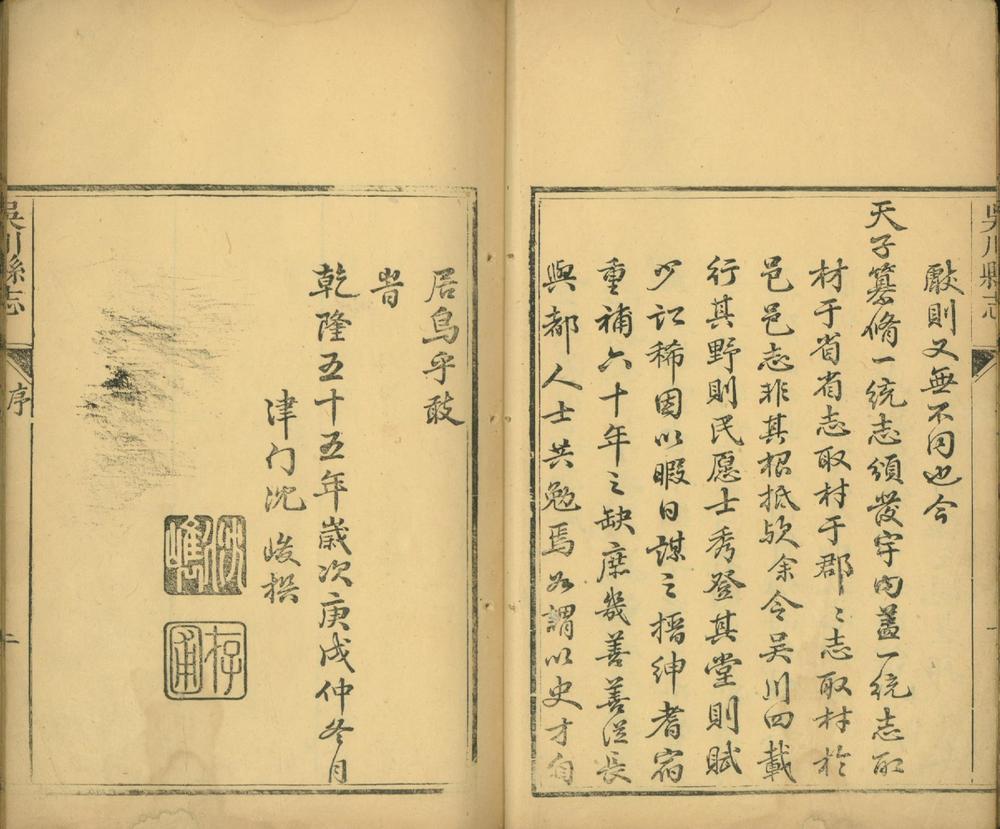 吳川縣志
厭則又無不同也今
天子纂脩一統志頒發宇內蓋一統志取
材于省省志取材于郡〻志取材於
邑邑志非其根抵欤余令吴川四載
行其野則民愿士秀登其堂則賦
少訟稀因以暇日謀之搢绅耆宿
重補六十年之缺庶幾善善従長
與都人士共勉焉若謂以史才自
居烏乎敢
旹
乾隆五十五年歲次庚戌仲冬月
津门沈峻撰
沈峻
存圃
吳川縣志
序
二